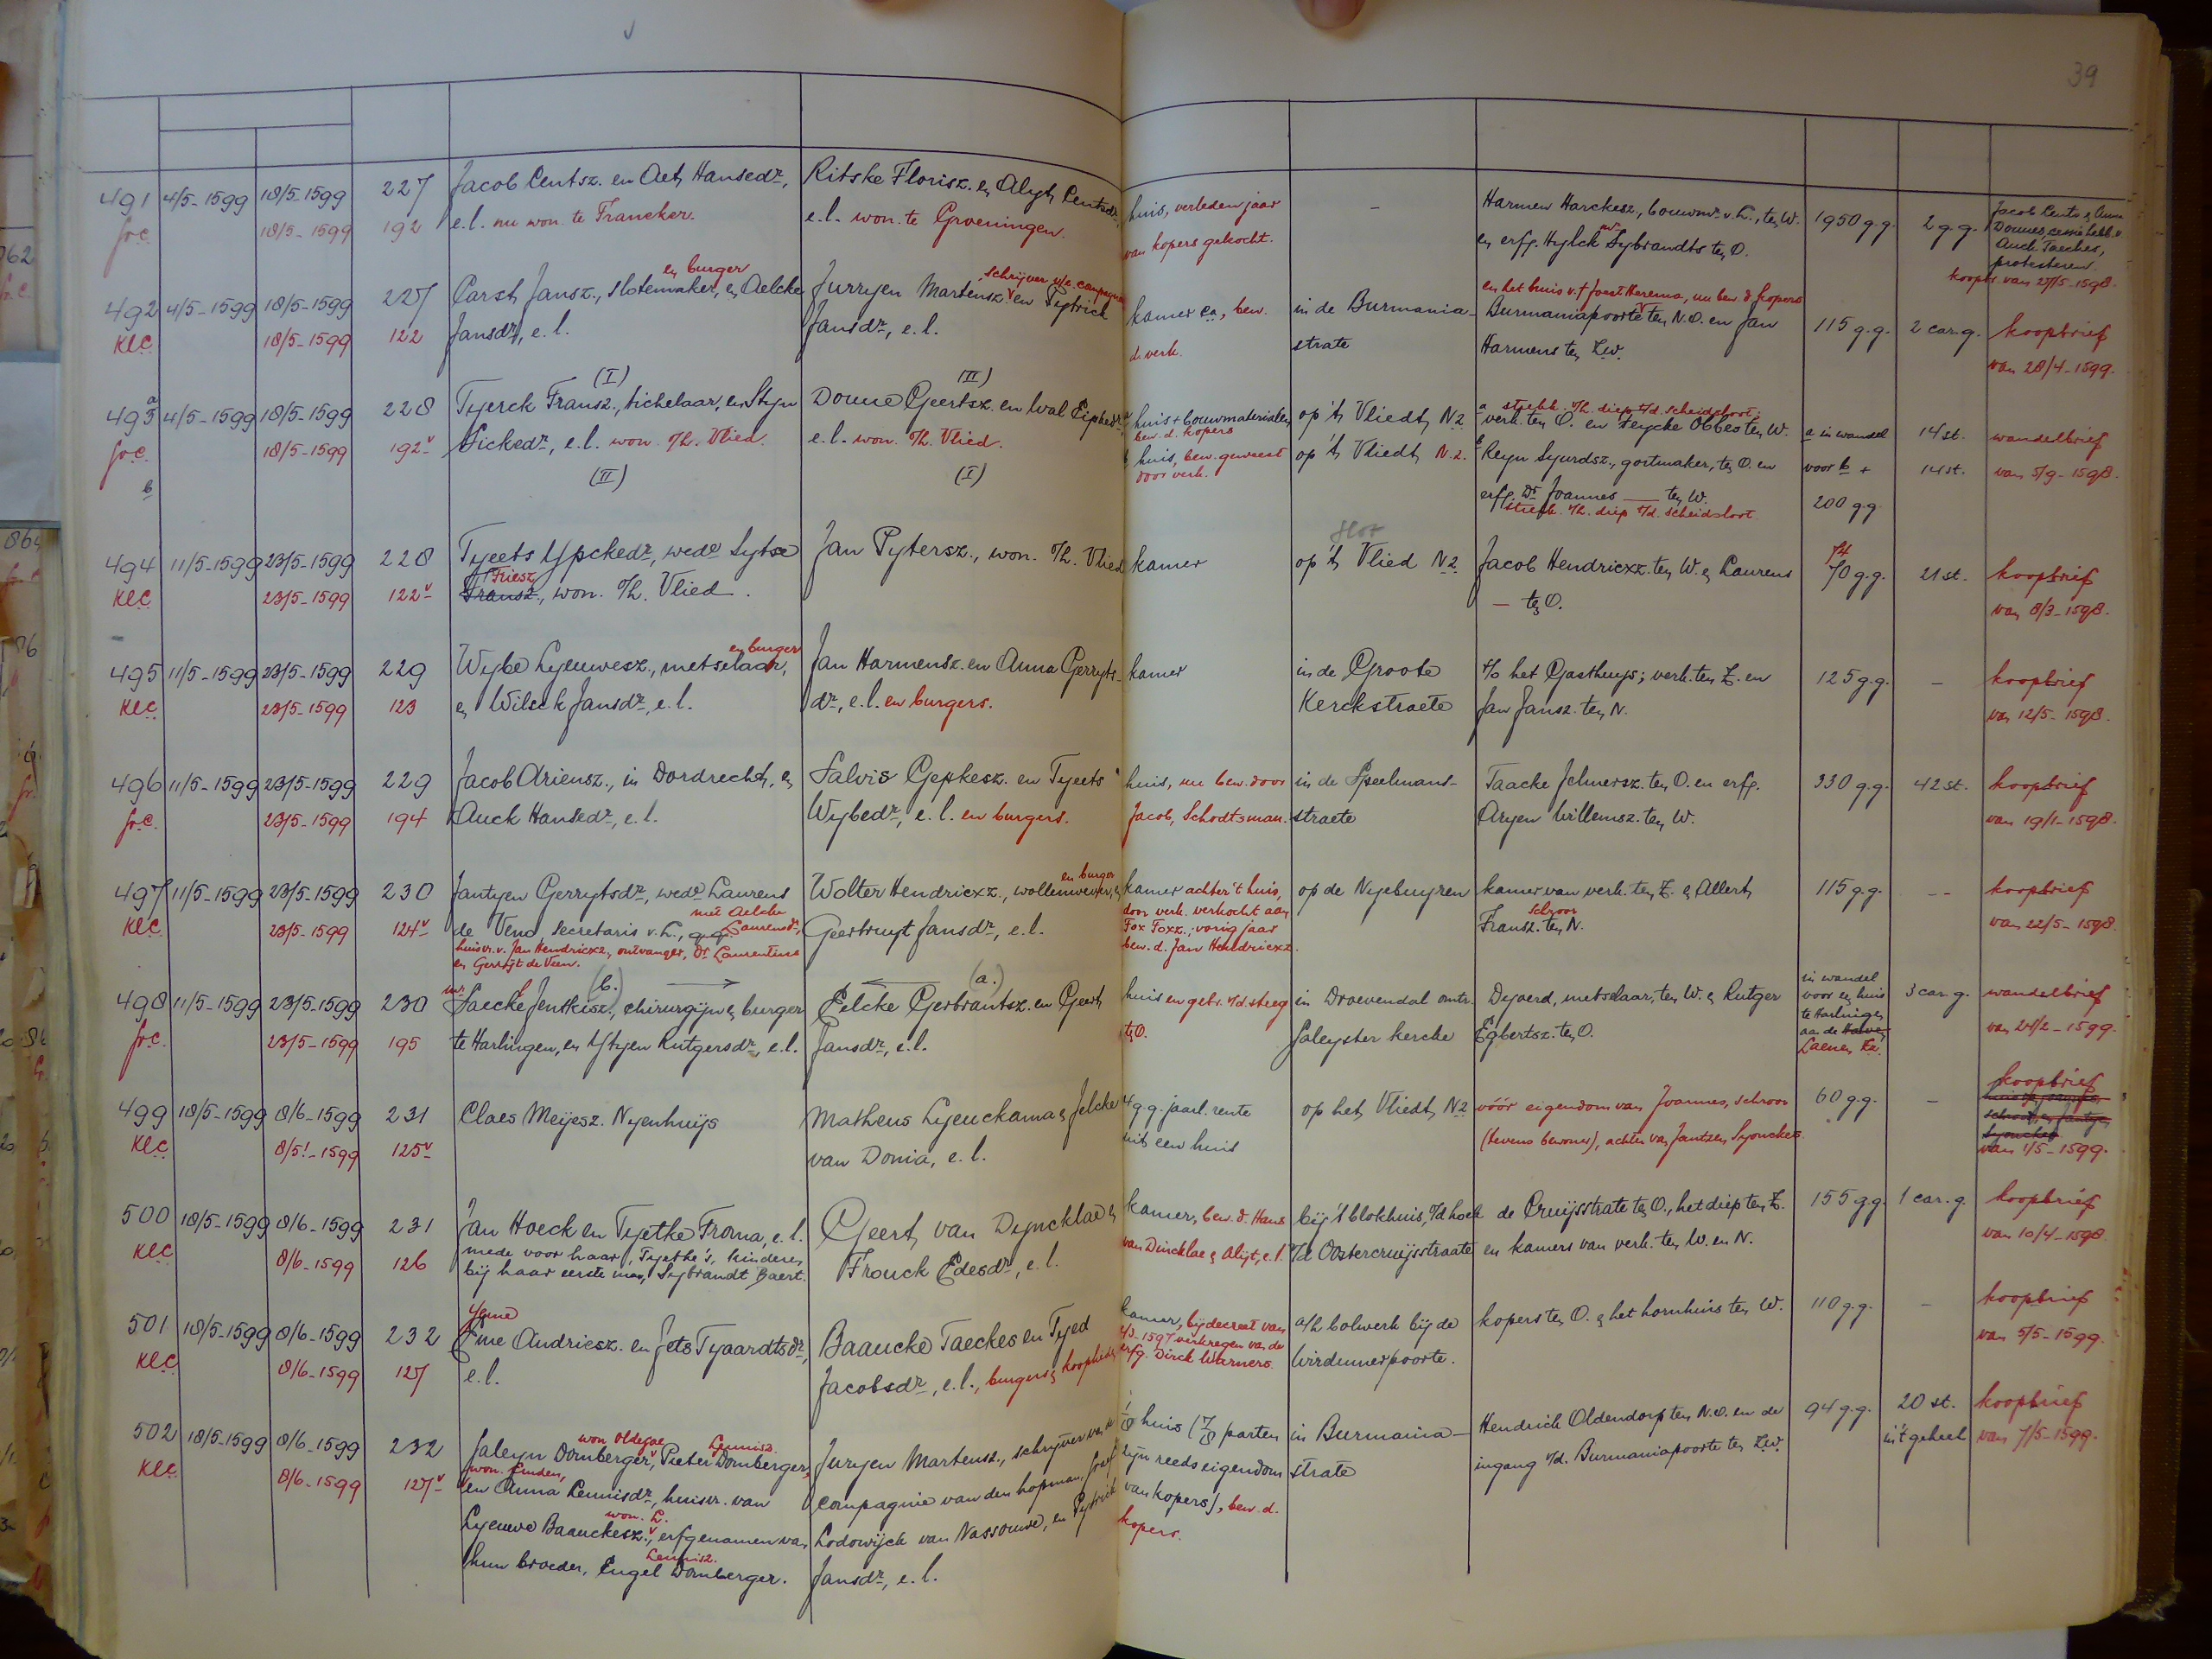 39
491 4/5-1599 18/5-1599 227 Jacob Centsz. en Aet Hansedr, Ritske Florisz. en Alyt Centsdr huis, verleden jaar - Harmen Harckesz., bouwmr v. L., ten W. 1950 g.g. 2 g.g. Jacob Cents & Anna
fo.c. 18/5-1599 192 e.l. nu won. te Francker. e.l. won. te Groeningen. van kopers gekocht. en erfg. Hylck Sybrandts ten O. Donnes,
Auck Taeckes,
protesteren.
koopbr. van 27/5-1598.
492 4/5-1599 18/5-1599 227 Carst Jansz., slotemaker, en burger en Aelcke Jurryen Martensz. schrijver v/e. compagnie en Pytrick kamer ca, bew. in de Burmania- en het huis v.† Joest Herema, nu bew. d. kopers
KLC 18/5-1599 122 Jansdr, e.l. Jansdr, e.l. d. verk. strate Burmaniapoorte ten N.O. en Jan 115 g.g. 2 car.g. koopbrief
Harmens ten Z.W. van 28/4-1599.
(I) (II)
493 a 4/5-1599 18/5-1599 228 Tyerck Fransz., tichelaar, en Styn Douwe Geertsz. en Wal Eipkedr, a huis + bouwmaterialen bew. d. kopers op 't Vliedt NZ a strekk. t/h. diep t/d. scheidsloot: verk. ten O. en Feycke Obbes ten W. a in wandel 14 st. wandelbrief
fo.c. b 18/5-1599 192v Sickedr, e.l. won. o/h. Vlied. e.l. won. o/h. Vlied. b huis, bew. geweest door verk. op 't Vliedt NZ. b Reyn Sjuerdsz., gortmaker, ten O. en voor b + 14 st. van 5/9-1598.
(II) (I) erfg. Dr Joannes — ten W. 200 g.g.
strekk. t/h. diep t/d. scheidsloot.
494 11/5-1599 23/5-1599 228 Tyeets Ypckedr, wede Sytse Jan Pytersz., won. o/h. Vlied kamer op 't Vlied NZ Jacob Hendricxz. ten W. & Laurens 74 70 g.g. 21 st. koopbrief
KLC 23/5-1599 122v Friesz Fransz., won. o/h. Vlied. — ten O. van 8/3-1598.
495 11/5-1599 23/5-1599 229 Wybe Lyeuwesz., metselaar, en burger Jan Harmensz. en Anna Gerryts- kamer in de Groote t/o het Gasthuys; verk. ten Z. en 125 g.g. - koopbrief
KLC 23/5-1599 123 en Wilsck Jansdr, e.l. dr, e.l. en burgers. Kerckstraete Jan Jansz. ten N. van 12/5-1598.
496 11/5-1599 23/5-1599 229 Jacob Ariensz., in Dordrecht, en Salvis Gepkesz. en Tyeets huis, nu bew. door in de Speelmans- Taacke Jelmersz. ten O. en erfg. 330 g.g. 42 st. koopbrief
fo.c. 23/5-1599 194 Auck Hansedr, e.l. Wybedr, e.l. en burgers. Jacob, Schodtsman. straete Aryen Willemsz. ten W. van 19/1-1598.
497 11/5-1599 23/5-1599 230 Jantyen Gerrytsdr, wede Laurens Wolter Hendricxz., wollenwever, en burger en kamer achter 't huis, op de Nyebuyren kamer van verk. ten Z. & Allert 115 g.g. -- koopbrief
KLC 23/5-1599 124v de Veno, secretaris v. L., q.q. met Aelcke Laurensdr, Geertruyt Jansdr, e.l. door verk. verkocht aan Fransz. schroor ten N. van 22/5-1598.
huisvr. v. Jan Hendricxz, ontvanger, Dr Laurentius Fox Foxz., vorig jaar
en Gerryt de Veen. bew. d. Jan Hendricxz.
(b.) (a.)
498 11/5-1599 23/5-1599 230 mr Saecke Jentkisz., chirurgijn & burger Eelcke Gerbrantsz. en Geert huis en gebr. v/d. steeg in Droevendal omtr. Dyoerd, metselaar, ten W. & Rutger in wandel voor en huis 3 car. g. wandelbrief
fo.c. 23/5-1599 195 te Harlingen, en Ytyen Rutgersdr, e.l. Jansdr, e.l. ten O. Jaleyster kercke Egbertsz. ten O. te Harlingen aan de Haven Laenen NZ. van 24/2-1599.
499 18/5-1599 8/6-1599 231 Claes Meijesz. Nyenhuijs Matheus Lyeuckama & Jelcke 4 g.g. jaarl. rente op het Vliedt NZ vóór eigendom van Joannes, schroor 60 g.g. - koopbrief
KLC 8/5!-1599 125v van Donia, e.l. uit een huis (tevens bewoner), achter van Jantzen Syouckes. van 1/5-1599.
500 18/5-1599 8/6-1599 231 Jan Hoeck en Tyetke Froma, e.l. Geert van Dyncklae & kamer, bew. d. Hans bij 't blokhuis, o/d hoek de Cruijsstrate ten O., het diep ten Z. 155 g.g. 1 car. g. koopbrief
KLC 8/6-1599 126 mede voor haar, Tyetke's, kinderen Frouck Edesdr, e.l. van Dincklae & Aligt, e.l. v/d Oostercruijsstraate en kamers van verk. ten W. en N. van 10/4-1598.
bij haar eerste man, Sybrandt Baert.
501 18/5-1599 8/6-1599 232 Yeme Eme Andriesz. en Jets Tyaardtsdr, Baaucke Taeckes en Tyed kamer, bij decreet van a/h bolwerk bij de kopers ten O. & het hornhuis ten W. 110 g.g. - koopbrief
KLC 8/6-1599 127 e.l. Jacobsdr, e.l., burgers & kooplieden 2/3-1597 verkregen van de Wirdumerpoorte. van 5/5-1599.
erfg. Dirck Warners.
502 18/5-1599 8/6-1599 232 Jaleyn Dornberger, won. Oldezae, Pieter Lennisz. Dornberger, Juryen Martensz., schrijver van de 1/8 huis (7/8 parten in Burmania- Hendrick Oldendorp ten N.O. en de 94 g.g. 20 st. koopbrief
KLC 8/6-1599 127v won. Emden, en Anna Lennisdr, huisvr. van compagnie van den hopman, Graef zijn reeds eigendom strate ingang v/d. Burmaniapoorte ten Z.W. in 't geheel van 7/5-1599.
Lyeuwe Baauckesz., won. L. erfgenamen van Lodowijck van Nassouwe, en Pytrick van kopers), bew. d.
hun broeder, Engel Lennisz. Dornberger. Jansdr, e.l. kopers.